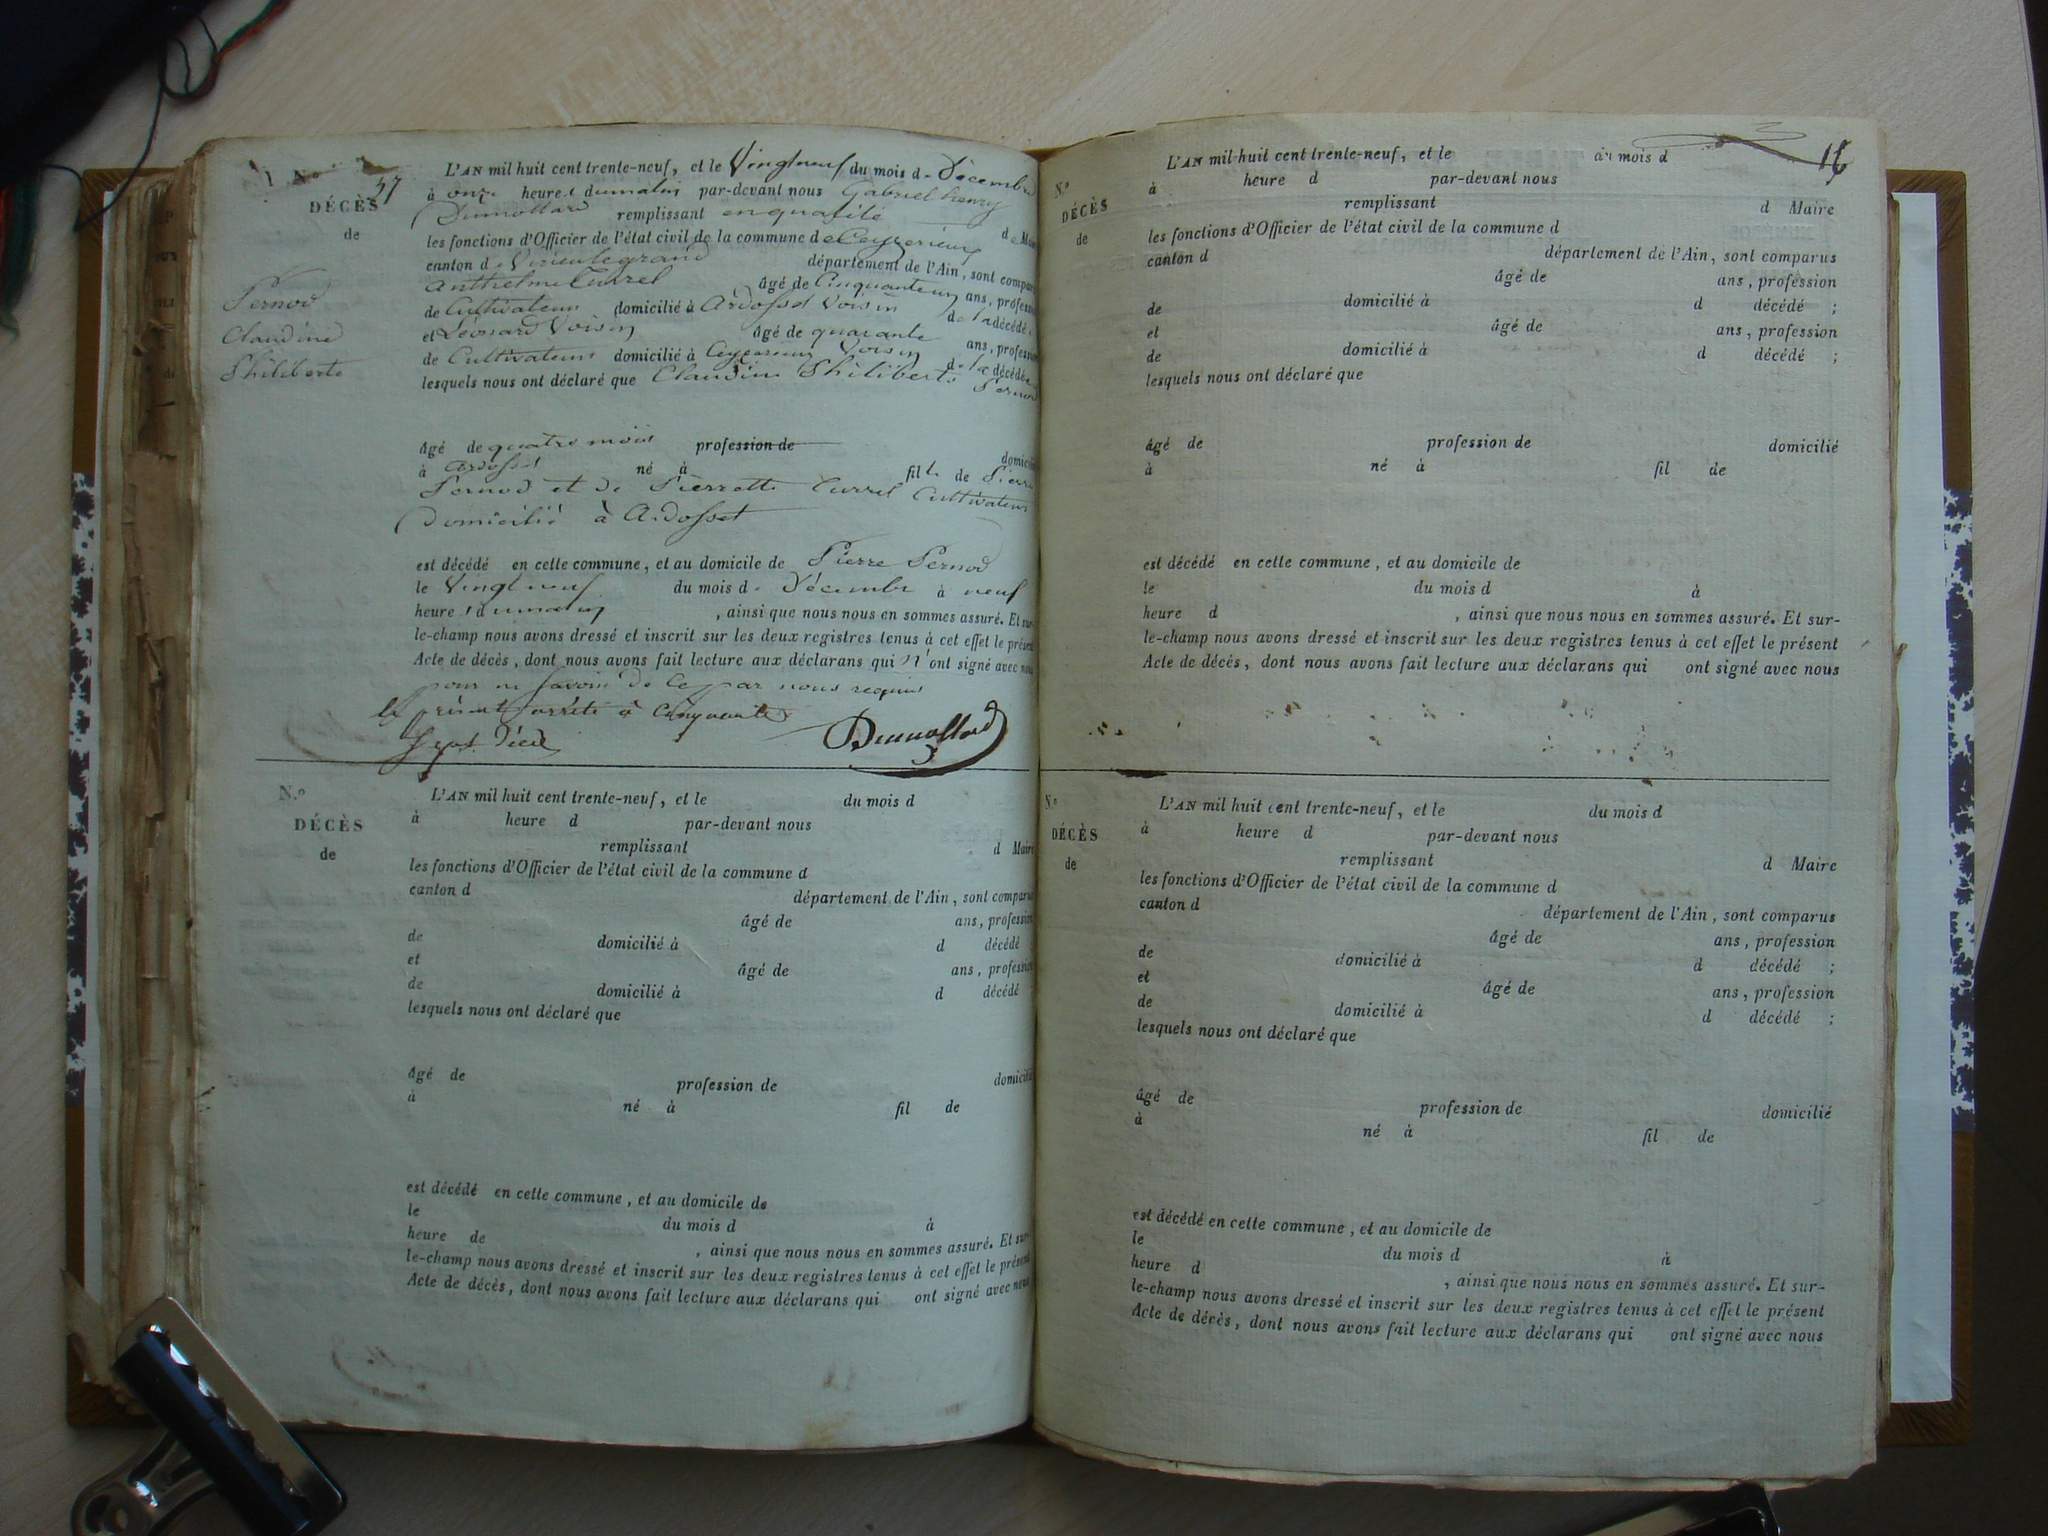 N.o 57
DÉCÈS
de
Pernod
Claudine
Philiberte
L'AN mil huit cent trente-neuf, et le Vingt neuf du mois de Décembre
à onze heures du matin par-devant nous Gabriel henry
Dumollard remplissant en qualité de Maire
les fonctions d'Officier de l'état civil de la commune de Ceyzerieux
canton de Virieu le grand département de l'Ain, sont comparus
Anthelme Curvel âgé de Cinquante un ans, profession
de Cultivateur domicilié à Ardosset Voisin de la décédée
et Léonard Voisin âgé de quarante ans, profession
de Cultivateur domicilié à Ceyzerieux Voisin de la décédée
lesquels nous ont déclaré que Claudine Philiberte Pernod
âgé de quatre mois profession de domicilié
à Ardosset né à fille de Pierre
Pernod et de Pierrette Curvel Cultivateurs
Domicilié à Ardosset
est décédé en cette commune, et au domicile de Pierre Pernod
le Vingt neuf du mois de Décembre à neuf
heures du matin, ainsi que nous nous en sommes assuré. Et sur-
le-champ nous avons dressé et inscrit sur les deux registres tenus à cet effet le présent
Acte de décès, dont nous avons fait lecture aux déclarans qui n'ont signé avec nous
pour ne savoir de ce par nous requis
le présent arrêté à Cinquante
Sept Décès
Dumollard
N.o
DÉCÈS
de
L'AN mil huit cent trente-neuf, et le du mois d
à heure d par-devant nous
remplissant d Maire
les fonctions d'Officier de l'état civil de la commune d
canton d département de l'Ain, sont comparus
âgé de ans, profession
de domicilié à d décédé
et âgé de ans, profession
de domicilié à d décédé
lesquels nous ont déclaré que
âgé de profession de domicilié
à né à fil de
est décédé en cette commune, et au domicile de
le du mois d à
heure de , ainsi que nous nous en sommes assuré. Et sur-
le-champ nous avons dressé et inscrit sur les deux registres tenus à cet effet le présent
Acte de décès, dont nous avons fait lecture aux déclarans qui ont signé avec nous
16
N.o
DÉCÈS
de
L'AN mil huit cent trente-neuf, et le du mois d
à heure d par-devant nous
remplissant d Maire
les fonctions d'Officier de l'état civil de la commune d
canton d département de l'Ain, sont comparus
âgé de ans, profession
de domicilié à d décédé ;
et âgé de ans, profession
de domicilié à d décédé ;
lesquels nous ont déclaré que
âgé de profession de domicilié
à né à fil de
est décédé en cette commune, et au domicile de
le du mois d à
heure d , ainsi que nous nous en sommes assuré. Et sur-
le-champ nous avons dressé et inscrit sur les deux registres tenus à cet effet le présent
Acte de décès, dont nous avons fait lecture aux déclarans qui ont signé avec nous
N.o
DÉCÈS
de
L'AN mil huit cent trente-neuf, et le du mois d
à heure d par-devant nous
remplissant d Maire
les fonctions d'Officier de l'état civil de la commune d
canton d département de l'Ain, sont comparus
âgé de ans, profession
de domicilié à d décédé ;
et âgé de ans, profession
de domicilié à d décédé ;
lesquels nous ont déclaré que
âgé de profession de domicilié
à né à fil de
est décédé en cette commune, et au domicile de
le du mois d à
heure d , ainsi que nous nous en sommes assuré. Et sur-
le-champ nous avons dressé et inscrit sur les deux registres tenus à cet effet le présent
Acte de décès, dont nous avons fait lecture aux déclarans qui ont signé avec nous